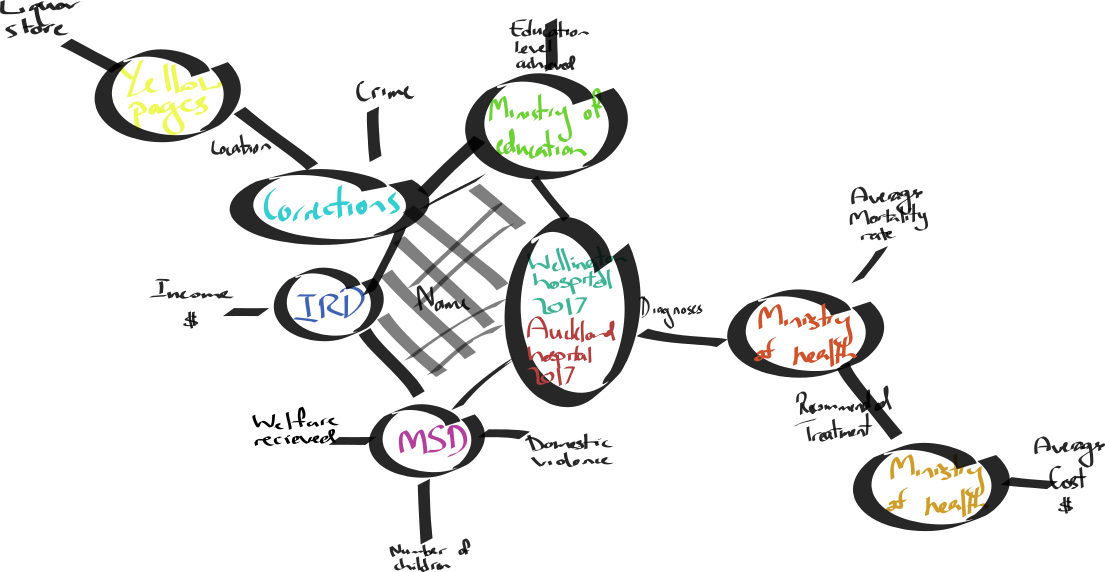 Liquor
store
Yellow
pages
Location
Crime
Corrections
Education
level
achieved
Ministry of
education
Income
$
IRD
Name
Wellington
hospital
2017
Auckland
hospital
2017
Diagnoses
Average
Mortality
rate
Ministry
of health
Recommended
Treatment
Ministry
of health
Average
Cost
$
Welfare
recieved
MSD
Domestic
violence
Number of
children